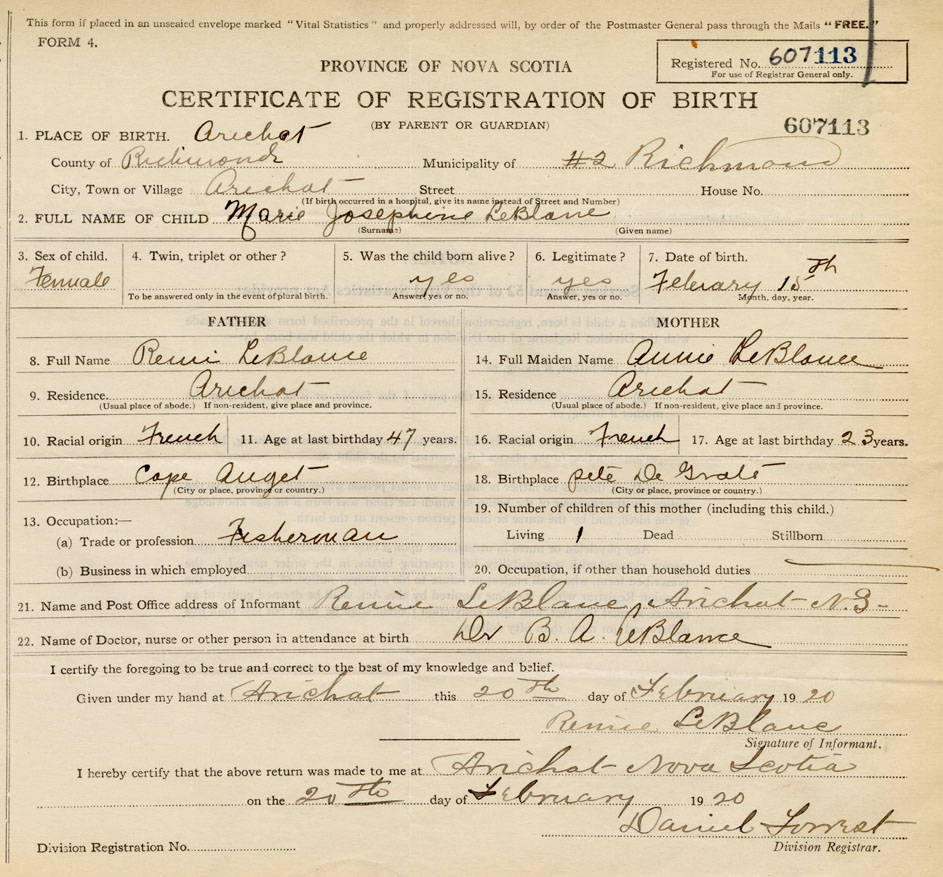 This form if placed in an unsealed envelope marked "Vital Statistics" and properly addressed will, by order of the Postmaster General pass through the Mails "FREE."
FORM 4.
Registered No. 607113
For use of Registrar General only.
PROVINCE OF NOVA SCOTIA
CERTIFICATE OF REGISTRATION OF BIRTH
(BY PARENT OR GUARDIAN)
607113
1. PLACE OF BIRTH. Arichat
County of Richmond Municipality of #2 Richmond
City, Town or Village Arichat Street House No.
(If birth occurred in a hospital, give its name instead of Street and Number)
2. FULL NAME OF CHILD Marie Josephine LeBlanc
(Surname) (Given name)
3. Sex of child. 4. Twin, triplet or other? 5. Was the child born alive? 6. Legitimate? 7. Date of birth.
Female yes yes Februrary 15th
To be answered only in the event of plural birth. Answer, yes or no. Answer, yes or no. Month, day, year.
FATHER MOTHER
8. Full Name Remi LeBlance 14. Full Maiden Name Annie LeBlance
9. Residence Arichat 15. Residence Arichat
(Usual place of abode.) If non-resident, give place and province. (Usual place of abode.) If non-resident, give place and province.
10. Racial origin French 11. Age at last birthday 47 years. 16. Racial origin French 17. Age at last birthday 23 years.
12. Birthplace Cape Auget 18. Birthplace pete De Grate
(City or place, province or country.) (City or place, province or country.)
13. Occupation:— 19. Number of children of this mother (including this child.)
(a) Trade or profession Fisherman Living 1 Dead Stillborn
(b) Business in which employed 20. Occupation, if other than household duties
21. Name and Post Office address of Informant Remie LeBlanc Arichat N.S-
22. Name of Doctor, nurse or other person in attendance at birth Dr B. A. LeBlance
I certify the foregoing to be true and correct to the best of my knowledge and belief.
Given under my hand at Arichat this 20th day of February 1920
Remie LeBlanc
Signature of Informant.
I hereby certify that the above return was made to me at Arichat Nova Scotia
on the 20th day of February 1920
Daniel Forrest
Division Registration No. Division Registrar.